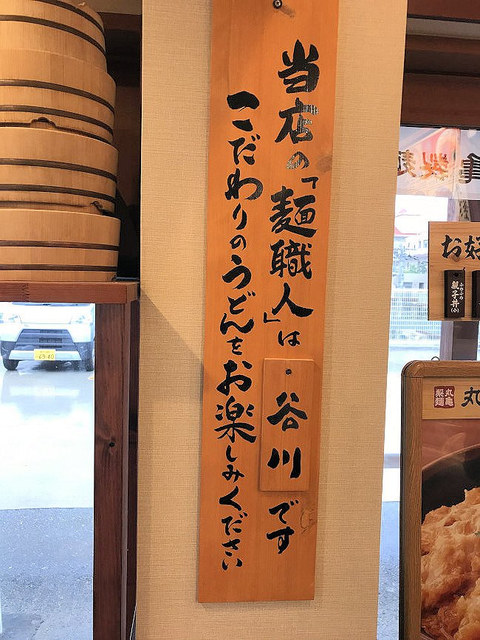 当店の「麺職人」は
谷川
です
こだわりのうどんをお楽しみください
お好
親子丼(小)
丸亀
製麺
丸